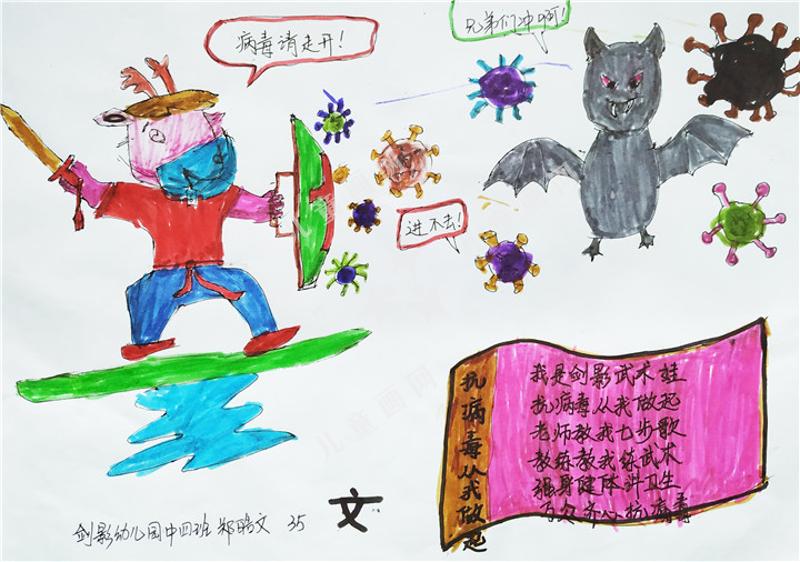 病毒请走开!
兄弟们冲啊!
进不去!
抗病毒从我做起
我是剑影武术娃
抗病毒从我做起
老师教我七步歌
教练教我练武术
强身健体讲卫生
万众齐心抗病毒
文
剑影幼儿园中四班 35
儿童画网